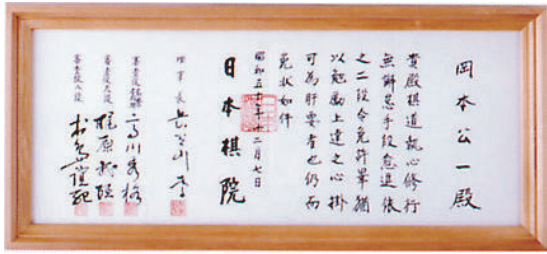 岡本公一殿
貴殿棋道執心修行
無懈怠手段愈進依
之二段令免許畢猶
以勉励上達之心掛
可為肝要者也仍而
免状如件
昭和五十年十二月七日
日本棋院
理事長
審査役名誉
高川秀格
審査役九段
梶原武雄
審査役八段